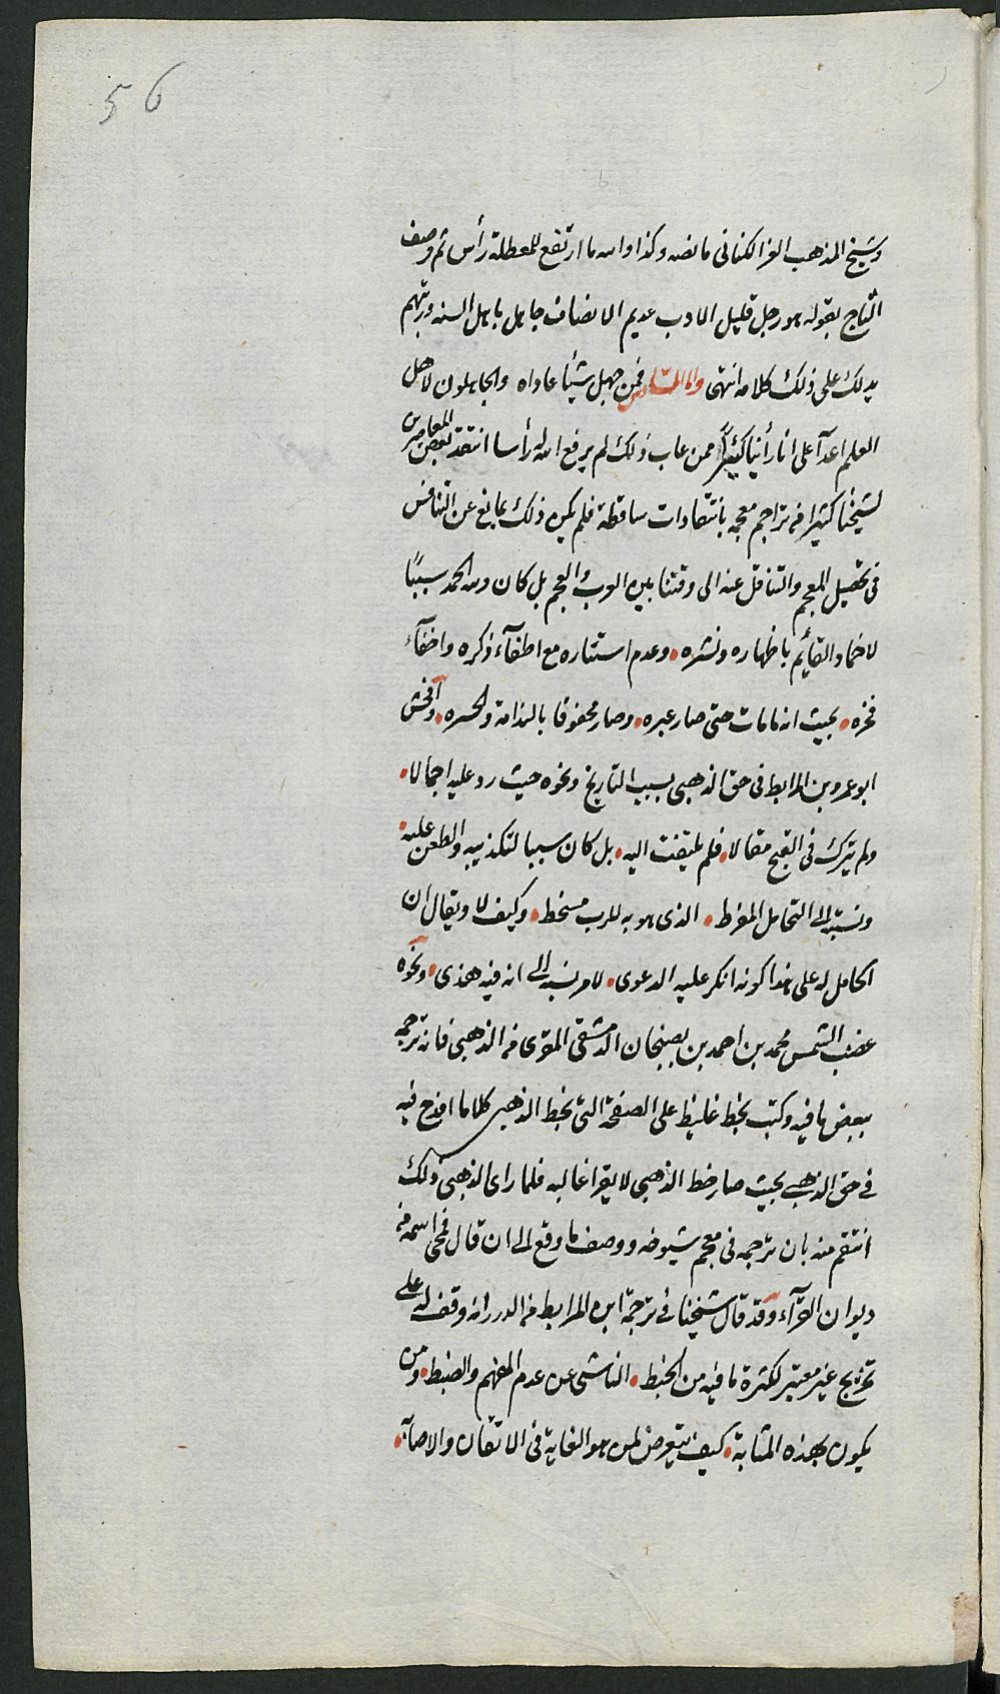 56
وشيخ المذهب العز الكناني ما نصه وكذا والله ما ارتفع للمعطلة رأس ثم وصف
التاج بقوله هو رجل قليل الادب عديم الانصاف جاهل باهل السنه ورتبهم
يدلك على ذلك كلامه انتهى واما السادس فمن جهل شيأ عاداه والجاهلون لاهل
العلم اعدآ على انا رأينا كثيرا ممن عاب ذلك لم يرفع الله له رأسا انتقد بعض المعاصرين
لشيخنا كثيرا من تراجم معجمه بانتقادات ساقطة فلم يكن ذلك بمانع عن التنافس
في تحصيل المعجم والتناقل عنه الى وقتنا بين العرب والعجم بل كان ولله الحمد سببًا
لاخماد القايم باظهاره ونشره وعدم استتاره مع اطفآء ذكره واخفآء
فخره بحيث انه مامات حتى صار عبره وصار محفوفا بالندامة والحسره وافحش
ابو عمرو بن المرابط في حق الذهبي بسبب التاريخ ونحوه حيث رد عليه اجمالا
ولم يترك في القبح مقالا فلم يلتفت اليه بل كان سببا لتكذيبه والطعن عليه
ونسبته الى التحامل المفرط الذى هو به للرب مسخط وكيف لا ويقال ان
الحامل له على هذا كونه انكر عليه الدعوى لامر نسبه الى انه فيه هذى ونحوه
غضب الشمس محمد بن احمد بن بصخان الدمشقى المقرى من الذهبي فانه ترجمه
ببعض ما فيه وكتب بخط غليظ على الصفحة التى بخط الذهبي كلاما اقذع فيه
في حق الذهبي بحيث صار خط الذهبي لا يقرا غالبه فلما راى الذهبي ذلك
انتقم منه بان ترجمه في معجم شيوخه ووصف ما وقع له الى ان قال فمحى اسمه من
ديوان القرآء وقد قال شيخنا في ترجمة ابن المرابط من الدرر انه وقف له على
تخريج غير معتبر لكثرة ما فيه من الخبط الناشى عن عدم الفهم والضبط ومن
يكون بهذه المثابة كيف يتعرض لمن هو الغاية في الاتقان والاصابة